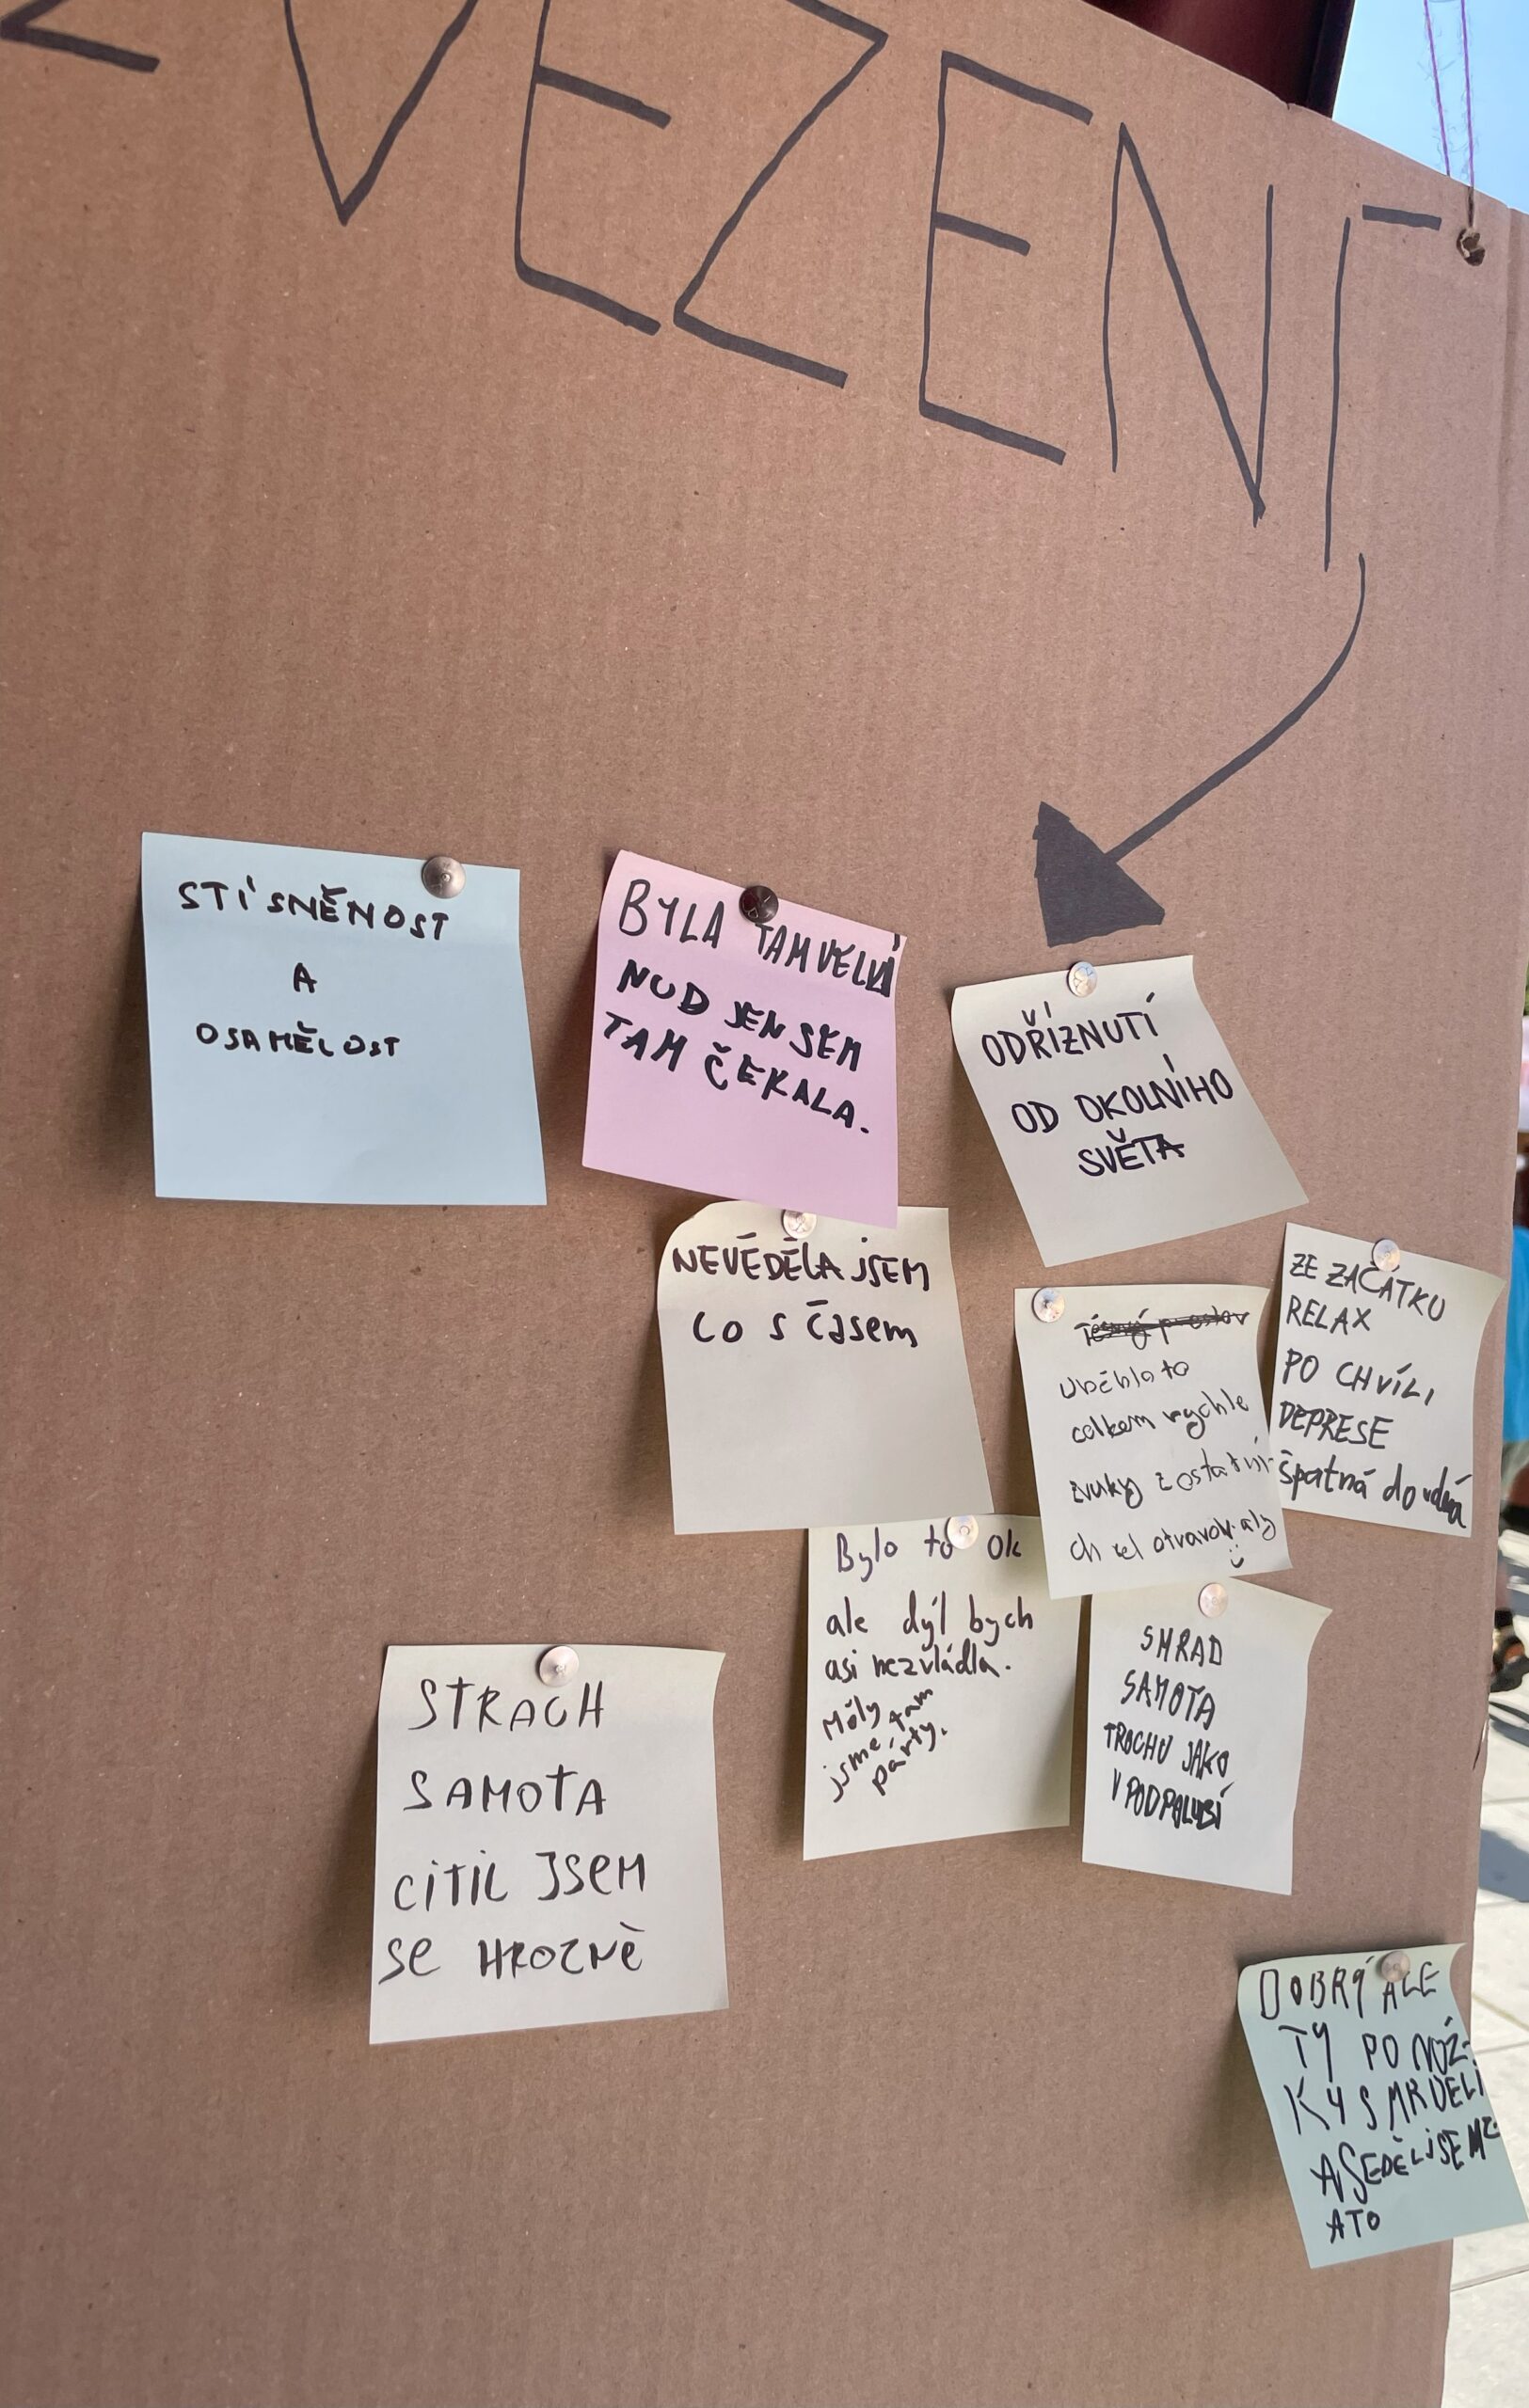 VEZENÍ
STÍSNĚNOST
A
OSAMĚLOST
BYLA TAM VELKÁ
NUD JEN SEM
TAM ČEKALA.
ODŘÍZNUTÍ
OD OKOLNÍHO
SVĚTA
NEVĚDĚLA JSEM
co s časem
Těsný prostor
Uběhlo to
celkem rychle
zvuky z ostatní-
ch cel otravovaly
ZE ZAČÁTKU
RELAX
PO CHVÍLI
DEPRESE
špatná
Bylo to ok
ale dýl bych
asi nezvládla.
Měly tam
jsme párty.
SMRAD
SAMOTA
TROCHU JAKO
V PODPALUBÍ
STRACH
SAMOTA
CíTIL JSEM
SE HROZNĚ
DOBRÝ ALE
TY PONOŽ-
KY SMRDĚLI
A SEDĚL JSEM
ATO